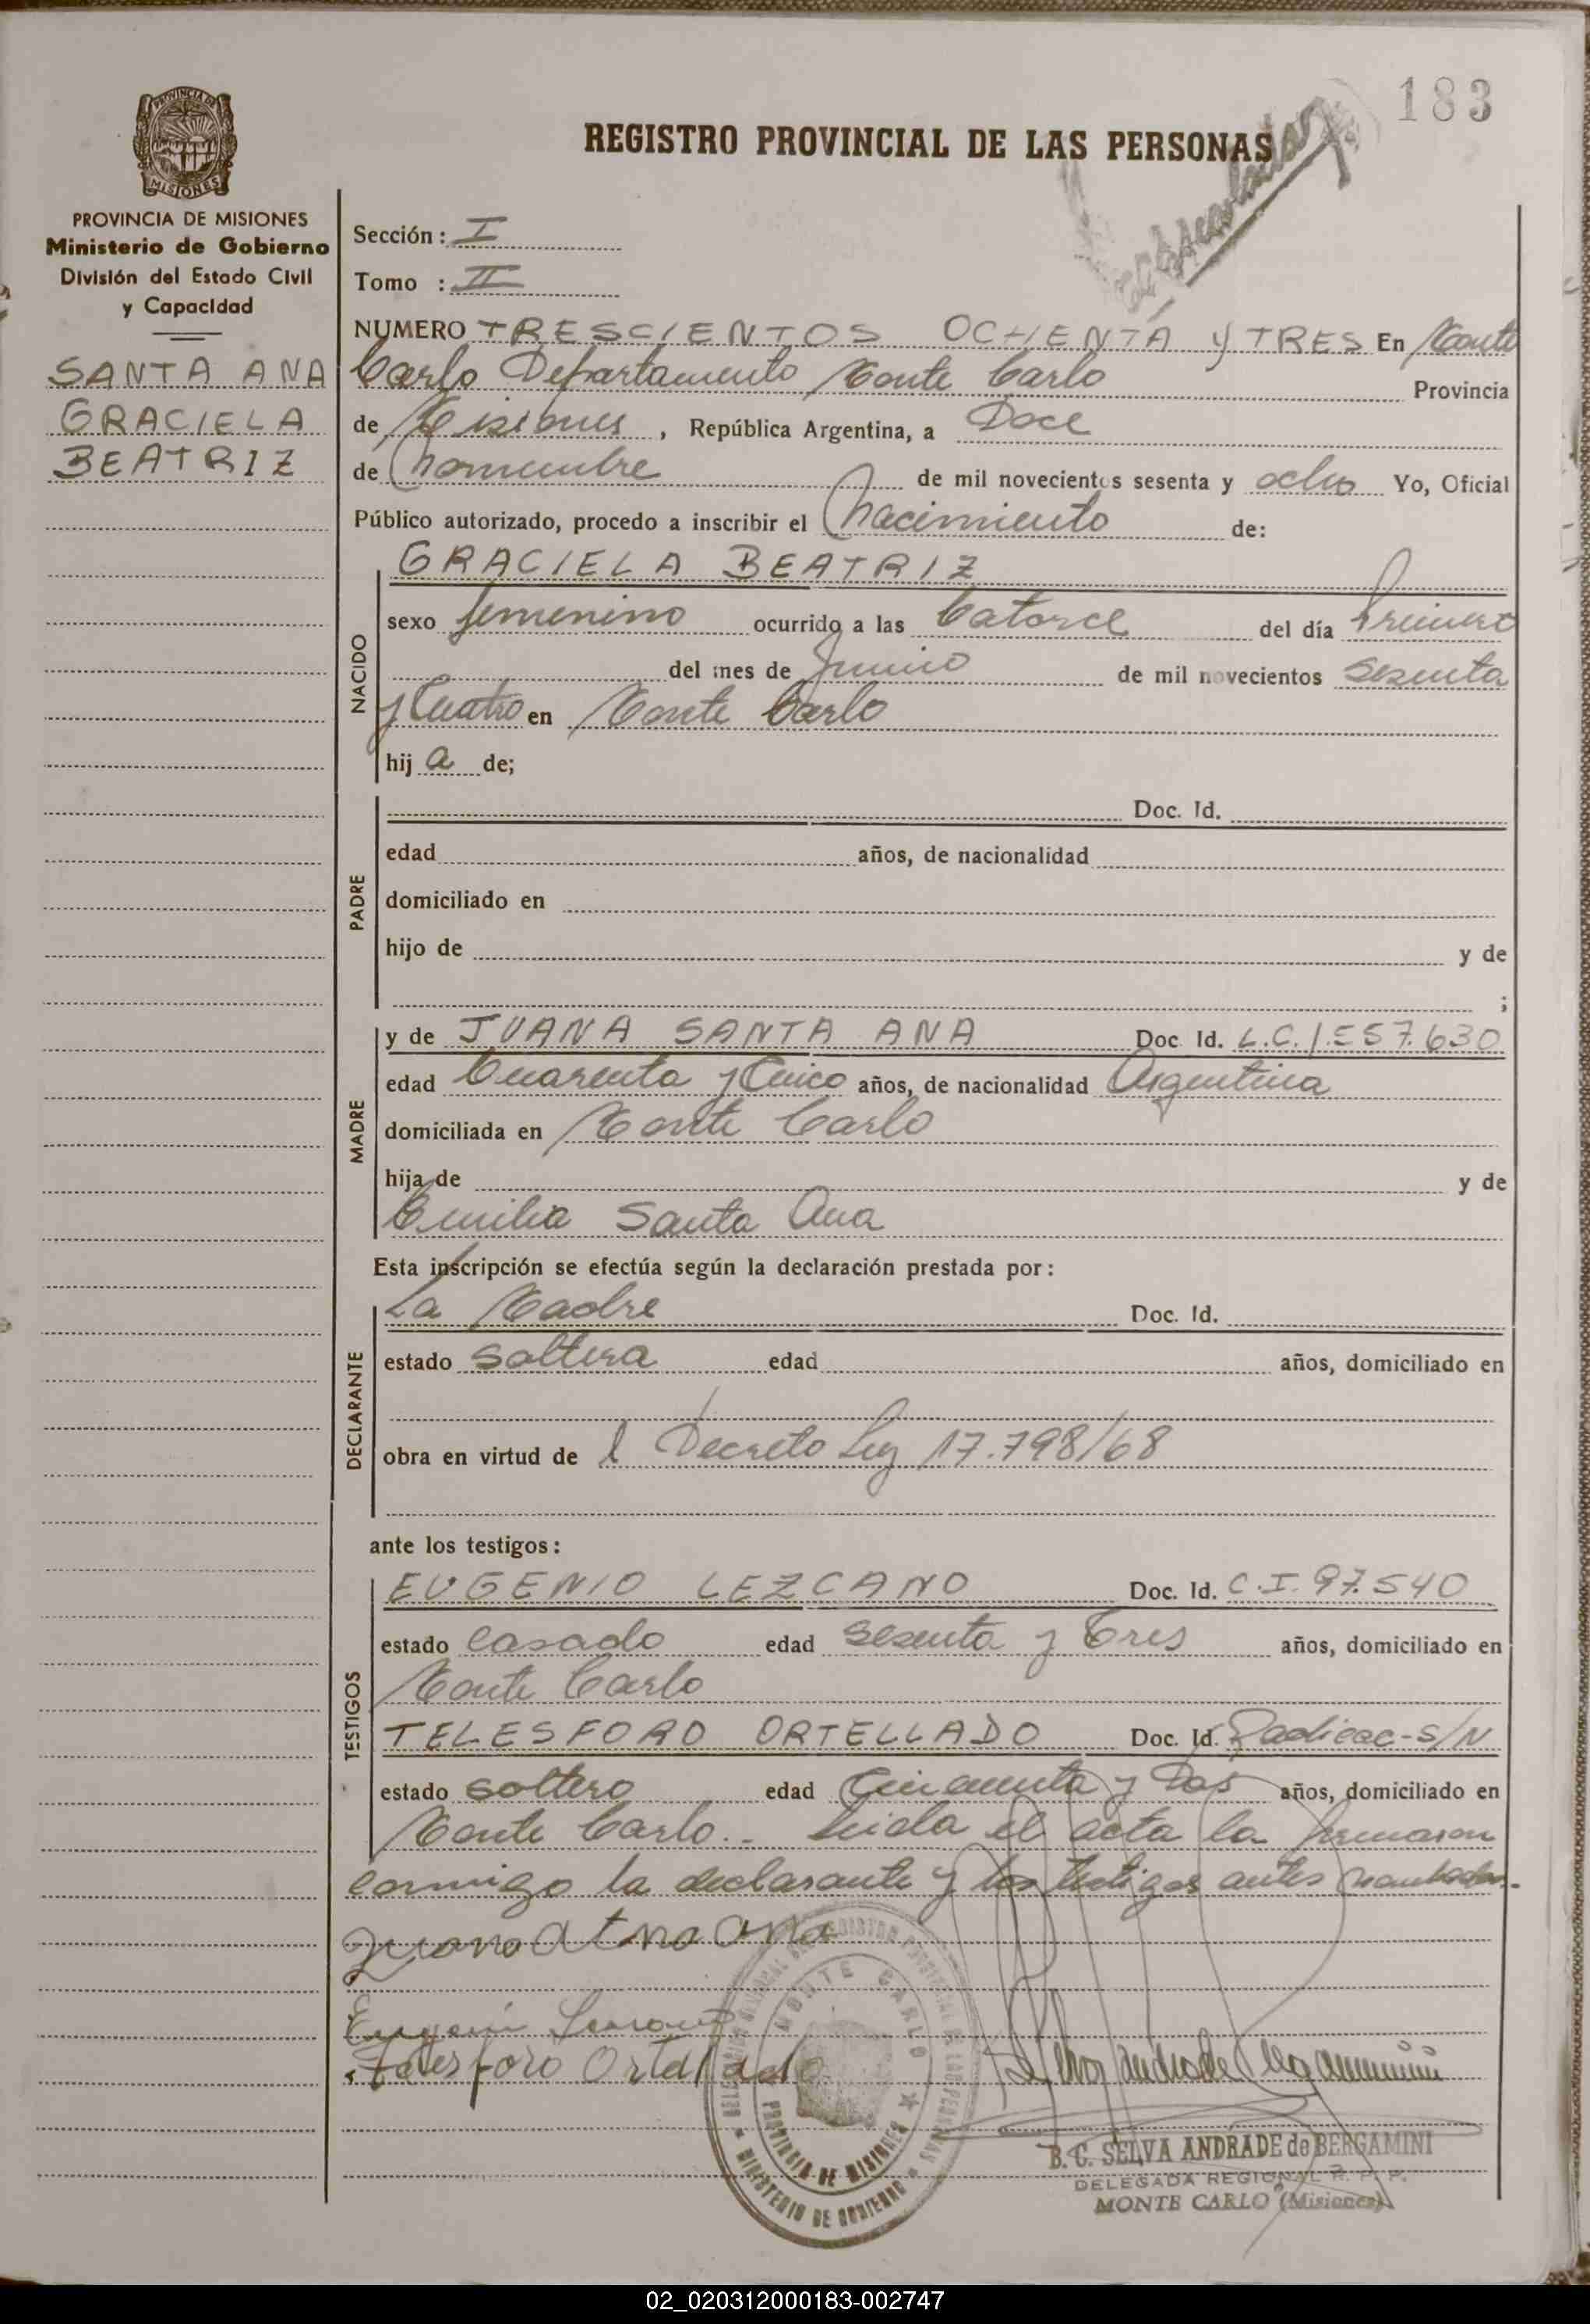 183
REGISTRO PROVINCIAL DE LAS PERSONAS
PROVINCIA DE MISIONES
Ministerio de Gobierno
División del Estado Civil
y Capacidad
SANTA ANA
GRACIELA
BEATRIZ
Sección: I
Tomo : II
NUMERO TRESCIENTOS OCHENTA y TRES En Monte
Carlo Departamento Monte Carlo Provincia
de Misiones, República Argentina, a Doce
de noviembre de mil novecientos sesenta y ocho Yo, Oficial
Público autorizado, procedo a inscribir el Nacimiento de:
NACIDO
GRACIELA BEATRIZ
sexo femenino ocurrido a las Catorce del día Primero
del mes de Junio de mil novecientos sesenta
y Cuatro en Monte Carlo
hij a de;
PADRE
Doc. Id.
edad años, de nacionalidad
domiciliado en
hijo de y de
;
MADRE
y de JUANA SANTA ANA Doc. Id. L.C. 1.557.630
edad Cuarenta y Cinco años, de nacionalidad Argentina
domiciliada en Monte Carlo
hija de y de
Emilia Santa Ana
Esta inscripción se efectúa según la declaración prestada por:
DECLARANTE
La Madre Doc. Id.
estado soltera edad años, domiciliado en
obra en virtud de l Decreto Ley 17.798/68
ante los testigos:
TESTIGOS
EUGENIO LEZCANO Doc. Id. C.I. 97.540
estado casado edad sesenta y Tres años, domiciliado en
Monte Carlo
TELESFORO ORTELLADO Doc. Id. Radicac-S/N
estado soltero edad Cincuenta y Dos años, domiciliado en
Monte Carlo.- Leida el acta la firmaron
conmigo la declarante y los testigos antes nombrados.-
Telesforo Ortellado
MONTE CARLO
PROVINCIA DE MISIONES
MINISTERIO DE GOBIERNO
B. C. SELVA ANDRADE de BERGAMINI
DELEGADA REGIONAL R. P. P.
MONTE CARLO (Misiones)
02_020312000183-002747